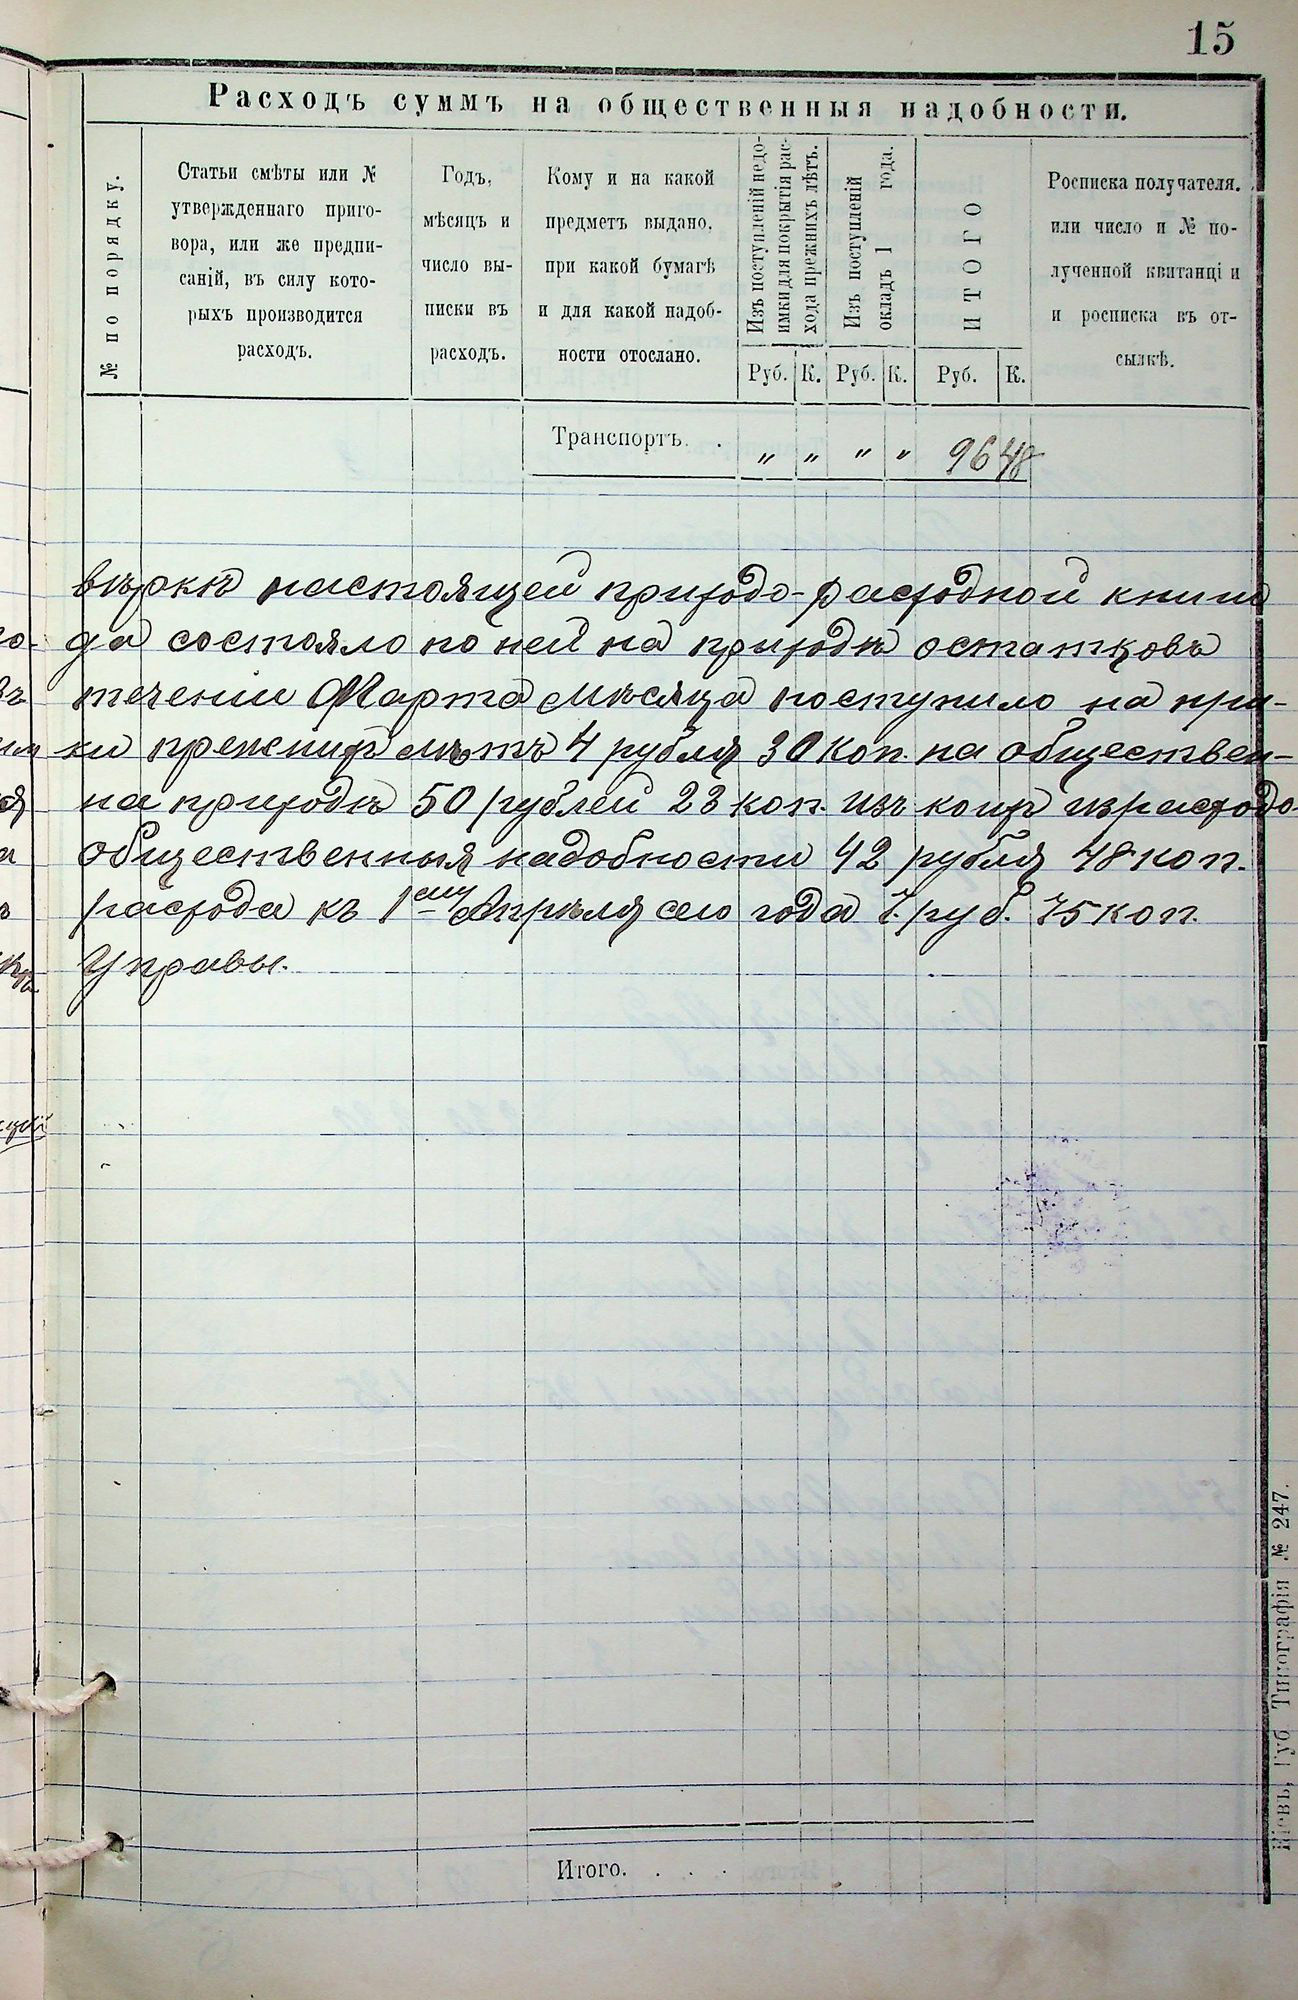 15
Расходъ суммъ на общественныя надобности.
№ по порядку.
Статьи смѣты или №
утвержденнаго приго-
вора, или же предпи-
саній, въ силу кото-
рыхъ производится
расходъ.
Годъ,
мѣсяцъ и
число вы-
писки въ
расходъ.
Кому и на какой
предметъ выдано,
при какой бумагѣ
и для какой надоб-
ности отослано.
Изъ поступленій недо-
имки для покрытія рас-
хода прежнихъ лѣтъ.
Изъ поступленій
окладъ 1 года.
ИТОГО
Росписка получателя.
или число и № по-
лученной квитанці и
и росписка въ от-
сылкѣ.
Руб. К. Руб. К. Руб. К.
Транспортъ. . " " " " 96 48
вѣркѣ настоящей приходо-расходной книги
да состояло по ней на приходѣ остатковъ
теченіи Марта мѣсяца поступило на при-
ки прежнихъ лѣтъ 4 рубля 30 коп. на обществен-
на приходѣ 50 рублей 23 коп. изъ коихъ израсходо-
общественныя надобности 42 рубля 48 коп.
расхода къ 1му Апрѣля сего года 7 руб. 75 коп.
Управы.
Итого. . . . .
Кіевъ, Губ. Типографія № 247.